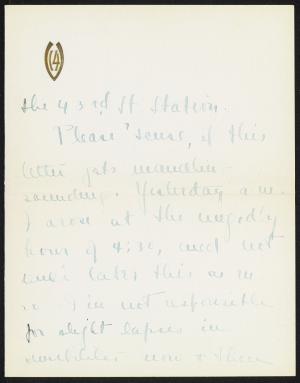 the 43rd St Station.
Please sense, if this
letter gets maudlin -
sounding. Yesterday a.m.
I arose at the ungodly
hour of 4:30, and not
later this a m
so I'm not responsible
for slight lapses in
now & then